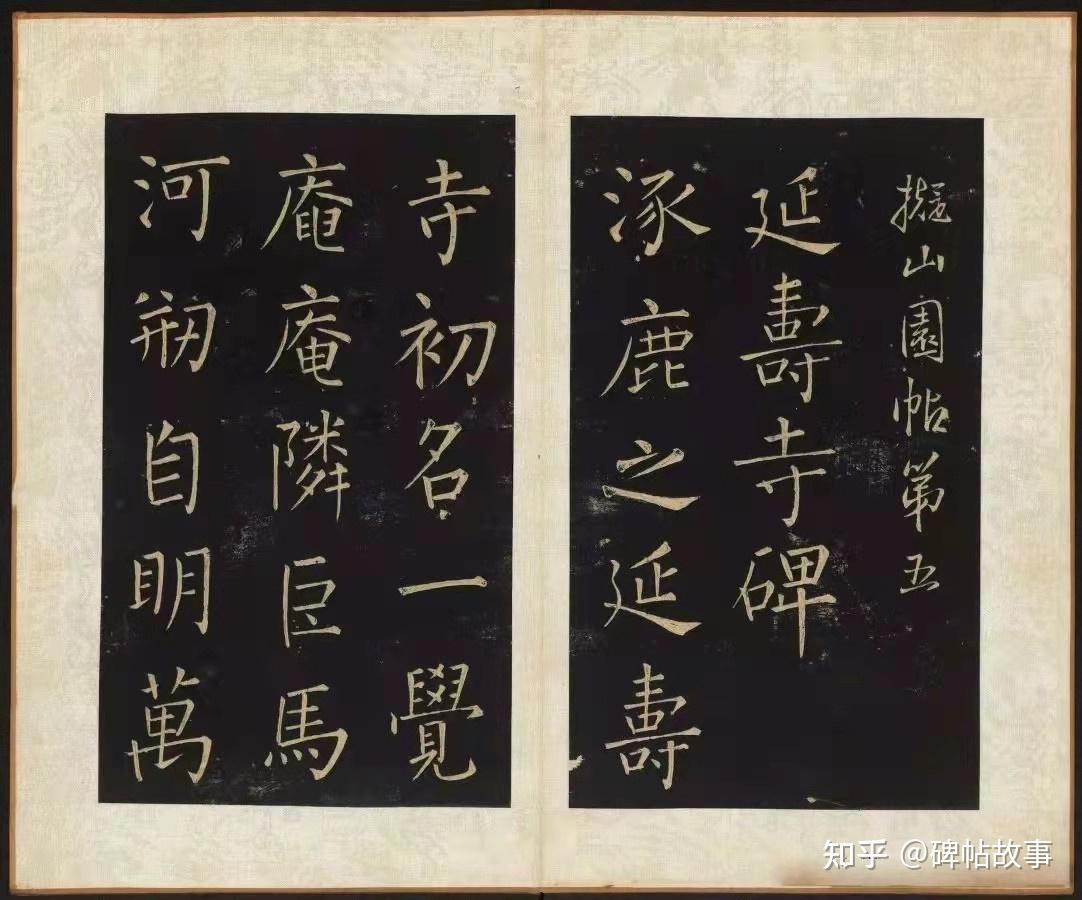 擬山園帖第五
延壽寺碑
涿鹿之延壽
寺初名一覺
庵庵隣巨馬
河剏自明萬
知乎 @碑帖故事